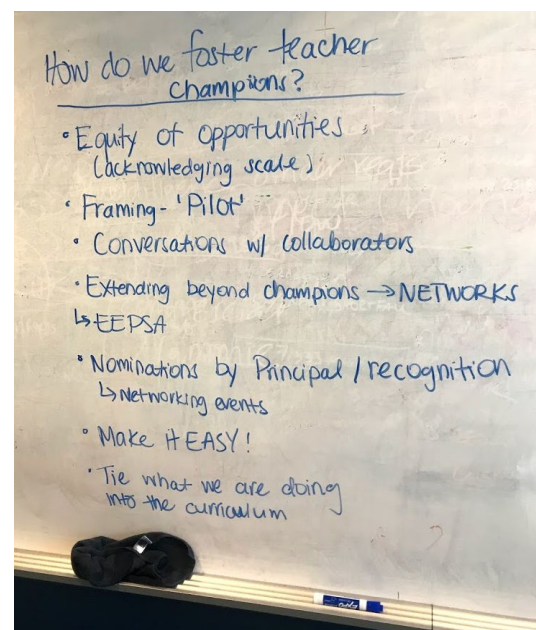 How do we foster teacher
champions?
• Equity of opportunities
(acknowledging scale)
• Framing - 'Pilot'
• Conversations w/ collaborators
• Extending beyond champions → NETWORKS
↳ EEPSA
• Nominations by Principal / recognition
↳ Networking events
• Make it EASY!
• Tie what we are doing
into the curriculum
EXPO